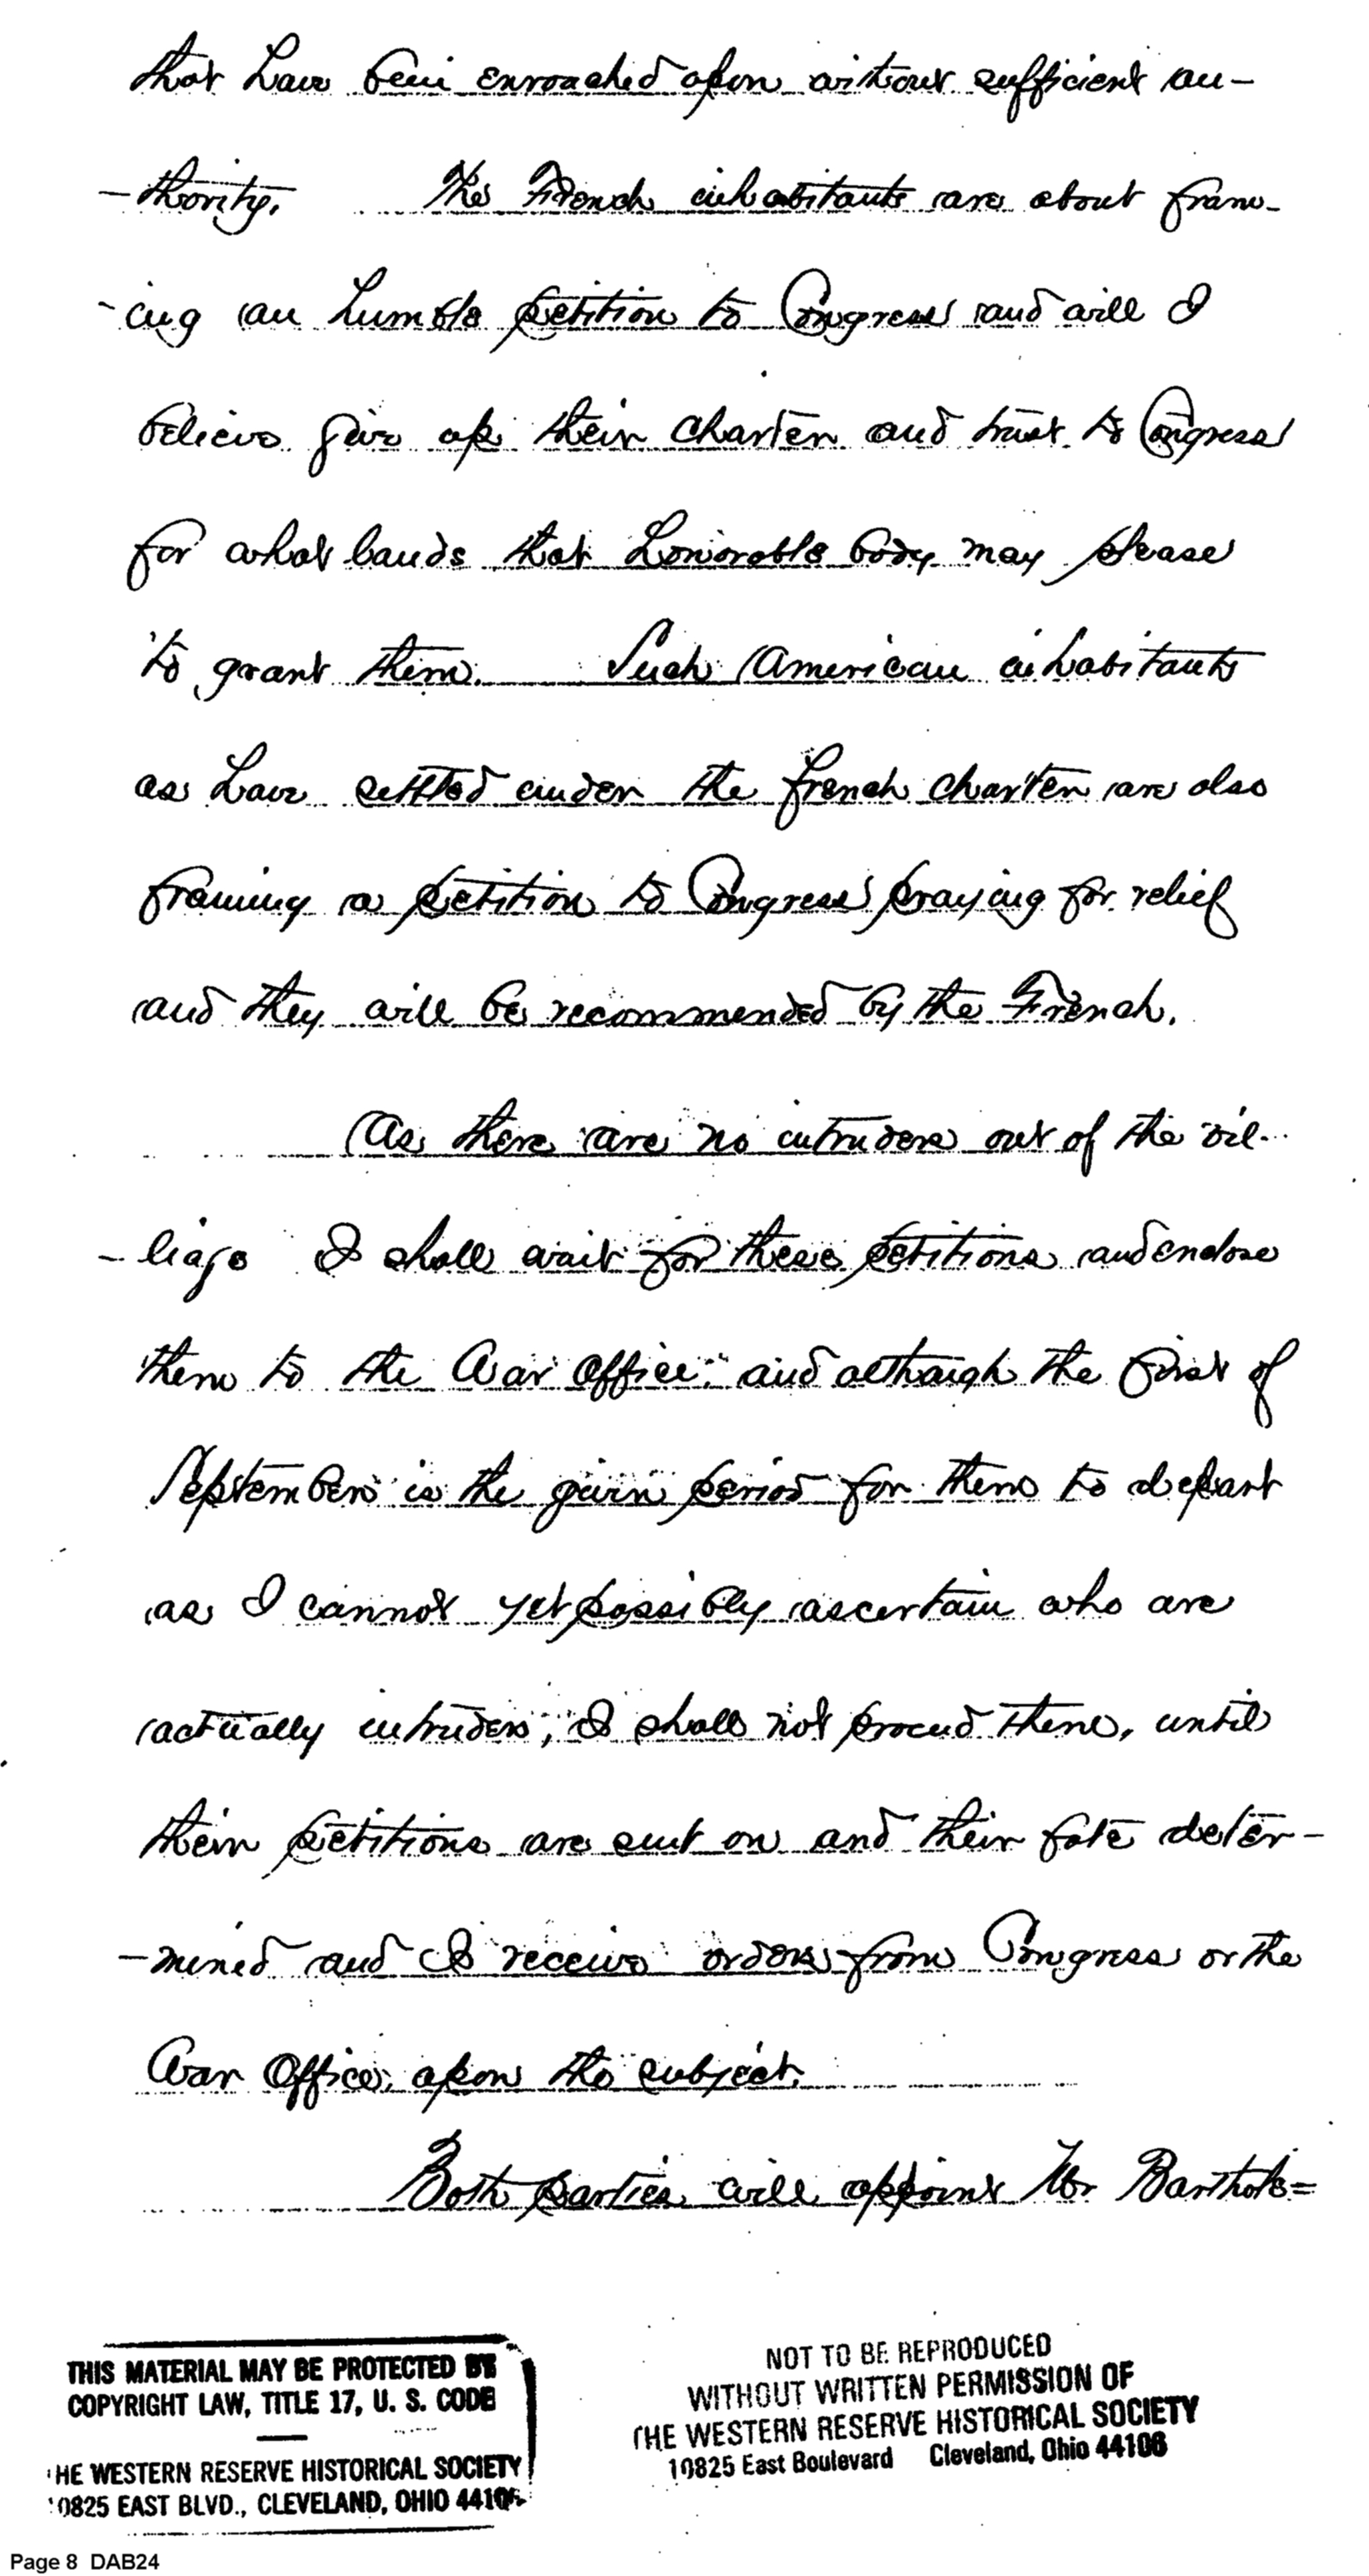 that have been enroached upon without sufficient au-
-thority. The French inhabitants are about fram-
-ing an humble petition to Congress and will I
believe give up their charter and trust to Congress
for what lands that honorable body may please
to grant them. Such American inhabitants
as have settled under the french charter are also
framing a petition to Congress praying for relief
and they will be recommended by the French.
As there are no intruders out of the vil-
-liage I shall wait for these petitions and enclose
them to the War Office: and although the first of
September is the given period for them to depart
as I cannot yet possibly ascertain who are
actually intruders, I shall not proceed there, until
their petitions are sent on and their fate deter-
-mined and I receive orders from Congress or the
War Office, upon the subject.
Both parties will appoint Mr Bartholo=
THIS MATERIAL MAY BE PROTECTED BY
COPYRIGHT LAW, TITLE 17, U. S. CODE
THE WESTERN RESERVE HISTORICAL SOCIETY
10825 EAST BLVD., CLEVELAND, OHIO 44106
NOT TO BE REPRODUCED
WITHOUT WRITTEN PERMISSION OF
THE WESTERN RESERVE HISTORICAL SOCIETY
10825 East Boulevard Cleveland, Ohio 44106
Page 8 DAB24